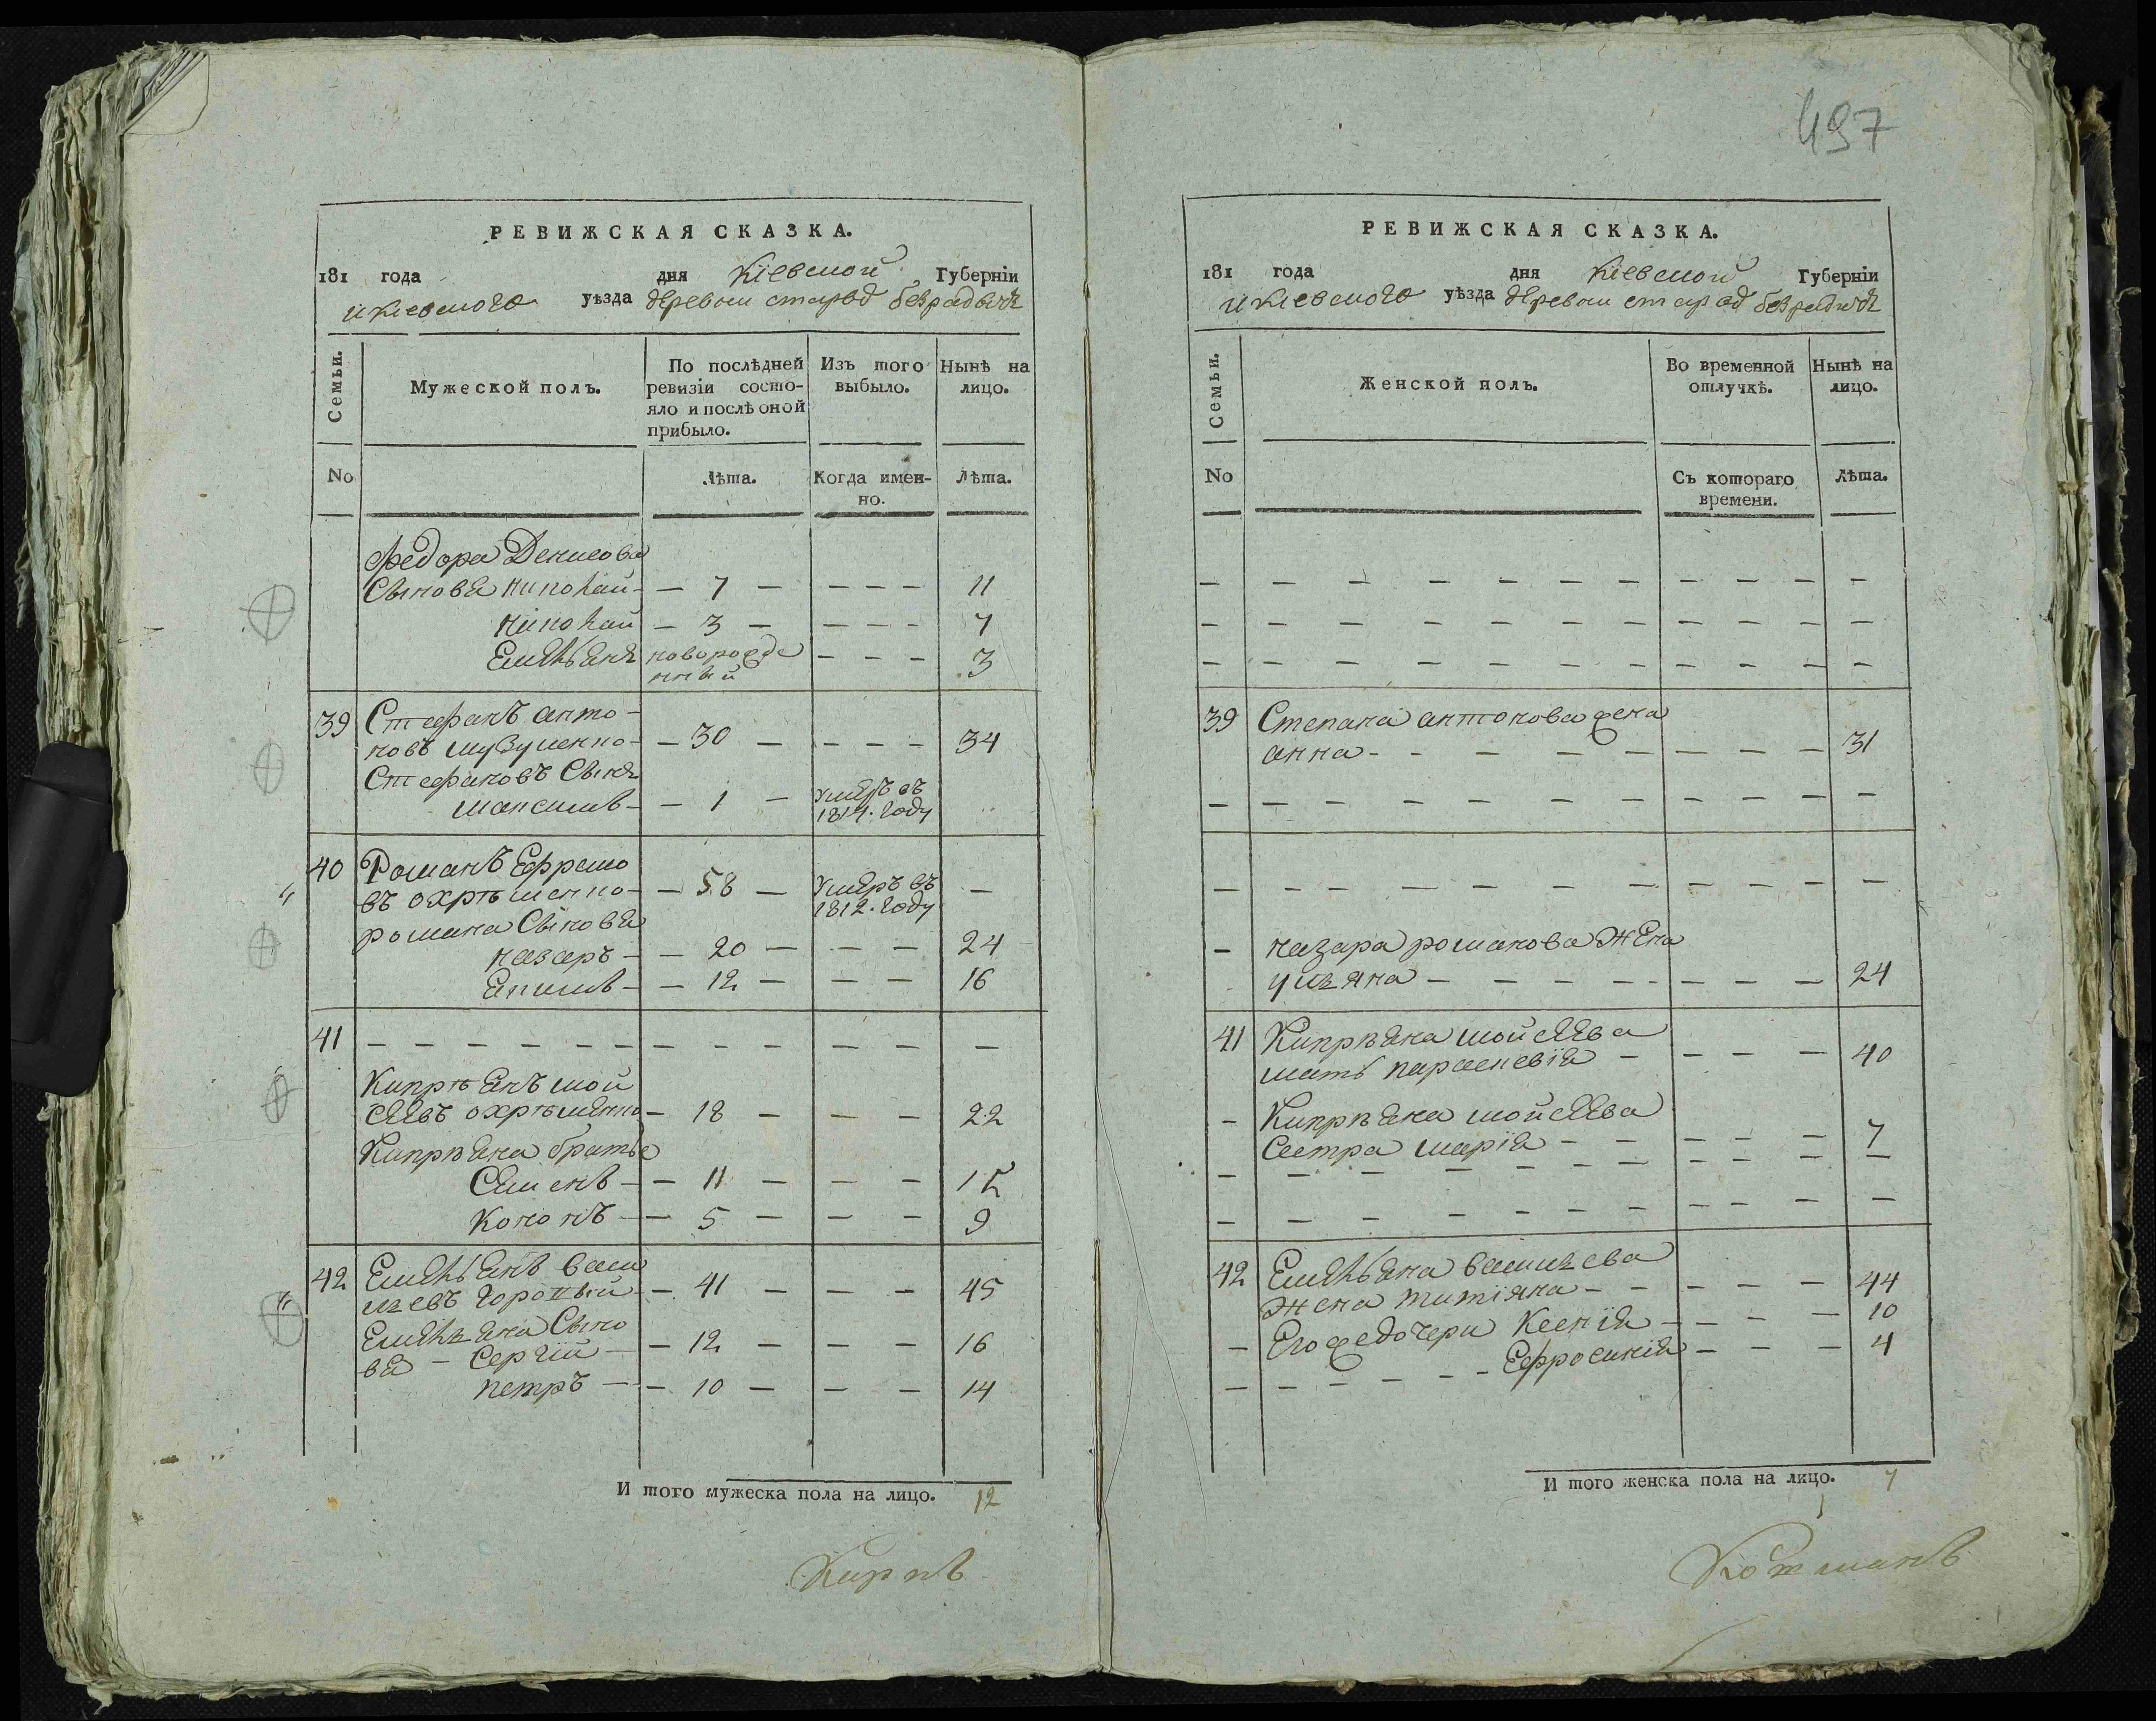 497
РЕВИЖСКАЯ СКАЗКА.
181 года дня Кіевской Губерніи
и Кіевского уѣзда деревни старыд безрадычъ
Семьи. Мужеской полъ. По послѣдней ревизіи состо-яло и послѣ оной прибыло. Изъ того выбыло. Нынѣ на лицо.
No Лѣта. Когда имен-но. Лѣта.
Федора Денисова
Сынове николай - 7 - - - - 11
николай - 3 - - - - 7
Емельянъ новорожде - - - 3
нный
39 Стефанъ анто-
новъ - 30 - - - - 34
Стефановъ Сынъ
максимъ - 1 - умеръ въ
1814. году
40 Романъ Ефремо
въ охрѣменко - 58 - умеръ въ -
1812. году
романа Сынове
назаръ - 20 - - - 24
Екимъ - 12 - - - 16
41 - - - - - - - - - - - -
Кипрѣянъ мой
сеевъ охрѣменко - 18 - - - 22
Кипрѣяна братья
Семенъ - 11 - - - 15
Кононъ - 5 - - - 9
42 Емельянъ васи
льевъ - 41 - - - 45
Емельяна Сыно
ве - Сергій - 12 - - - 16
петръ - 10 - - - 14
И того мужеска пола на лицо. 12
РЕВИЖСКАЯ СКАЗКА.
181 года дня Кіевской Губерніи
и Кіевского уѣзда деревни старыд безрадичъ
Семьи. Женской полъ. Во временной отлучкѣ. Нынѣ на лицо.
No Съ котораго времени. Лѣта.
39 Степана антонова жена
анна - - - - - - - - 31
- назара романова жена
ульяна - - - - - - - - 24
41 Кипрѣяна мойсеева
мать параскевія - - - - 40
- Кипрѣяна мойсеева
Сестра марія - - - - - 7
42 Емельяна васильева
жена титіяна - - - - - 44
- Его же дочери Ксенія - - - - 10
- - - - - - Ефросинія - - - 4
И того женска пола на лицо. 7